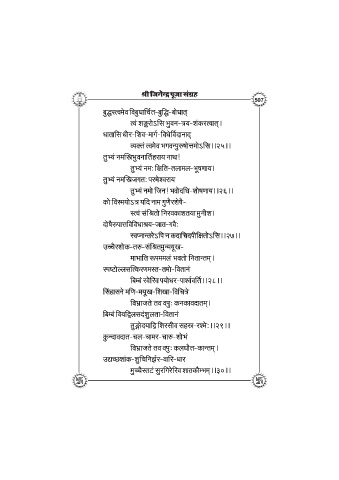 श्री जिनेन्द्र पूजा संग्रह
507
बुद्धस्त्वमेव विबुधार्चित-बुद्धि-बोधात्
त्वं शङ्करोऽसि भुवन-त्रय-शंकरत्वात् ।
धातासि धीर-शिव-मार्ग-विधेर्विधानाद्
व्यक्तं त्वमेव भगवन्पुरुषोत्तमोऽसि ।।२५।।
तुभ्यं नमस्त्रिभुवनार्तिहराय नाथ!
तुभ्यं नमः क्षिति-तलामल-भूषणाय।
तुभ्यं नमस्त्रिजगतः परमेश्वराय
तुभ्यं नमो जिन! भवोदधि-शोषणाय।।२६।।
को विस्मयोऽत्र यदि नाम गुणैरशेषै-
स्त्वं संश्रितो निरवकाशतया मुनीश।
दोषैरुपात्तविविधाश्रय-जात-गर्वैः
स्वप्नान्तरेऽपि न कदाचिदपीक्षितोऽसि।।२७।।
उच्चैरशोक-तरु-संश्रितमुन्मयूख-
माभाति रूपममलं भवतो नितान्तम्।
स्पष्टोल्लसत्किरणमस्त-तमो-वितानं
बिम्बं रवेरिव पयोधर-पार्श्ववर्ति।।२८।।
सिंहासने मणि-मयूख-शिखा-विचित्रे
विभ्राजते तव वपुः कनकावदातम्।
बिम्बं वियद्विलसदंशुलता-वितानं
तुङ्गोदयाद्रि शिरसीव सहस्र-रश्मेः।।२९।।
कुन्दावदात-चल-चामर-चारु-शोभं
विभ्राजते तव वपुः कलधौत-कान्तम्।
उद्यच्छशांक-शुचिनिर्झर-वारि-धार
मुच्चैस्तटं सुरगिरेरिव शातकौम्भम्।।३०।।